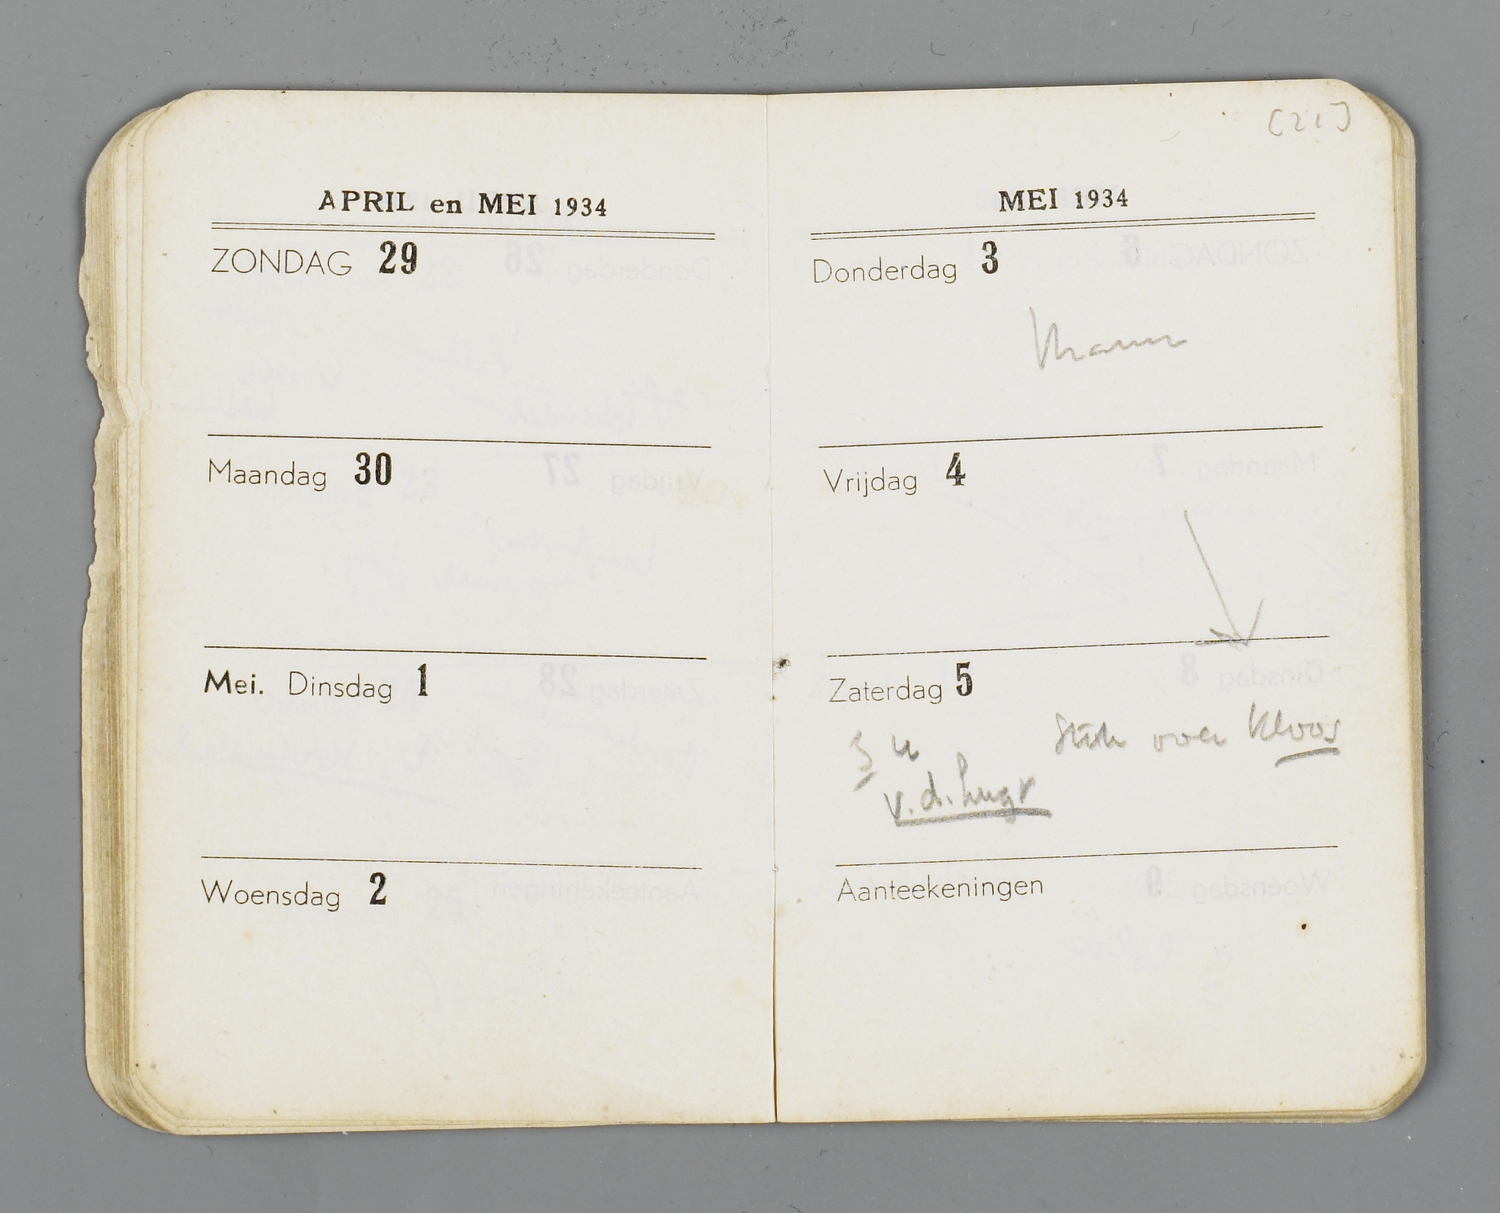 [21]
APRIL en MEI 1934
ZONDAG 29
Maandag 30
Mei. Dinsdag 1
Woensdag 2
MEI 1934
Donderdag 3
Vrijdag 4
Zaterdag 5
Stuk over Kloos
3 u
v.d. Lugt
Aanteekeningen